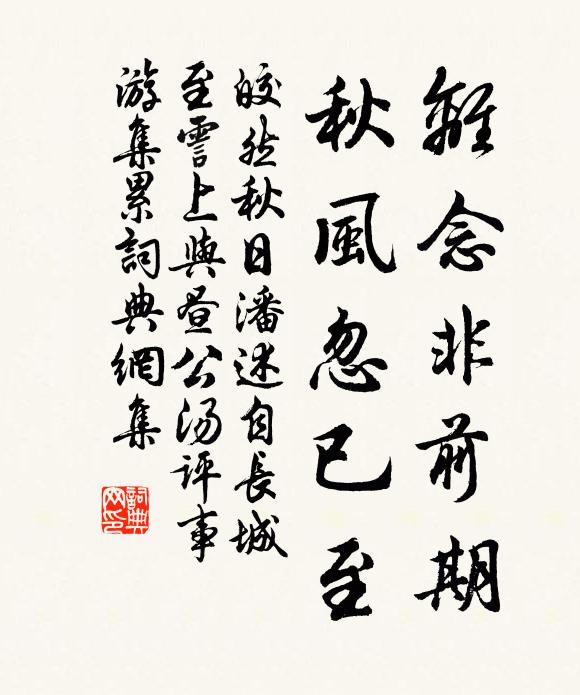 離念非前期
秋風忽已至
皎然秋日潘述自長城
至霅上與昼公湯評事
游集累詞典網集
詞典
网印